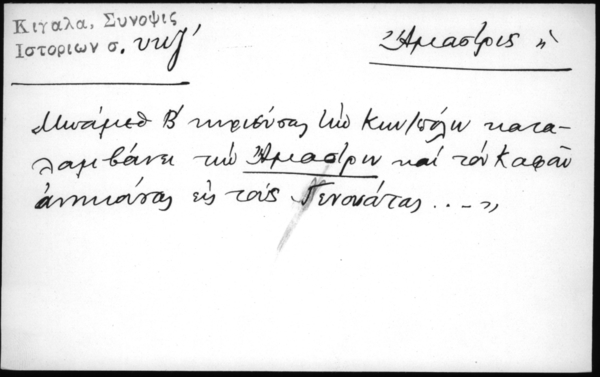 Κιγαλα, Συνοψις
Ιστοριων σ. υκζ΄
Ἄμαστρις ἡ
Μωάμεθ Β΄ κυριεύσας τὴν Κων/πόλιν κατα-
λαμβάνει τὴν Ἄμαστριν καὶ τὸν Καφᾶν
ἀνήκοντας εἰς τοὺς Γενουάτας ...-»